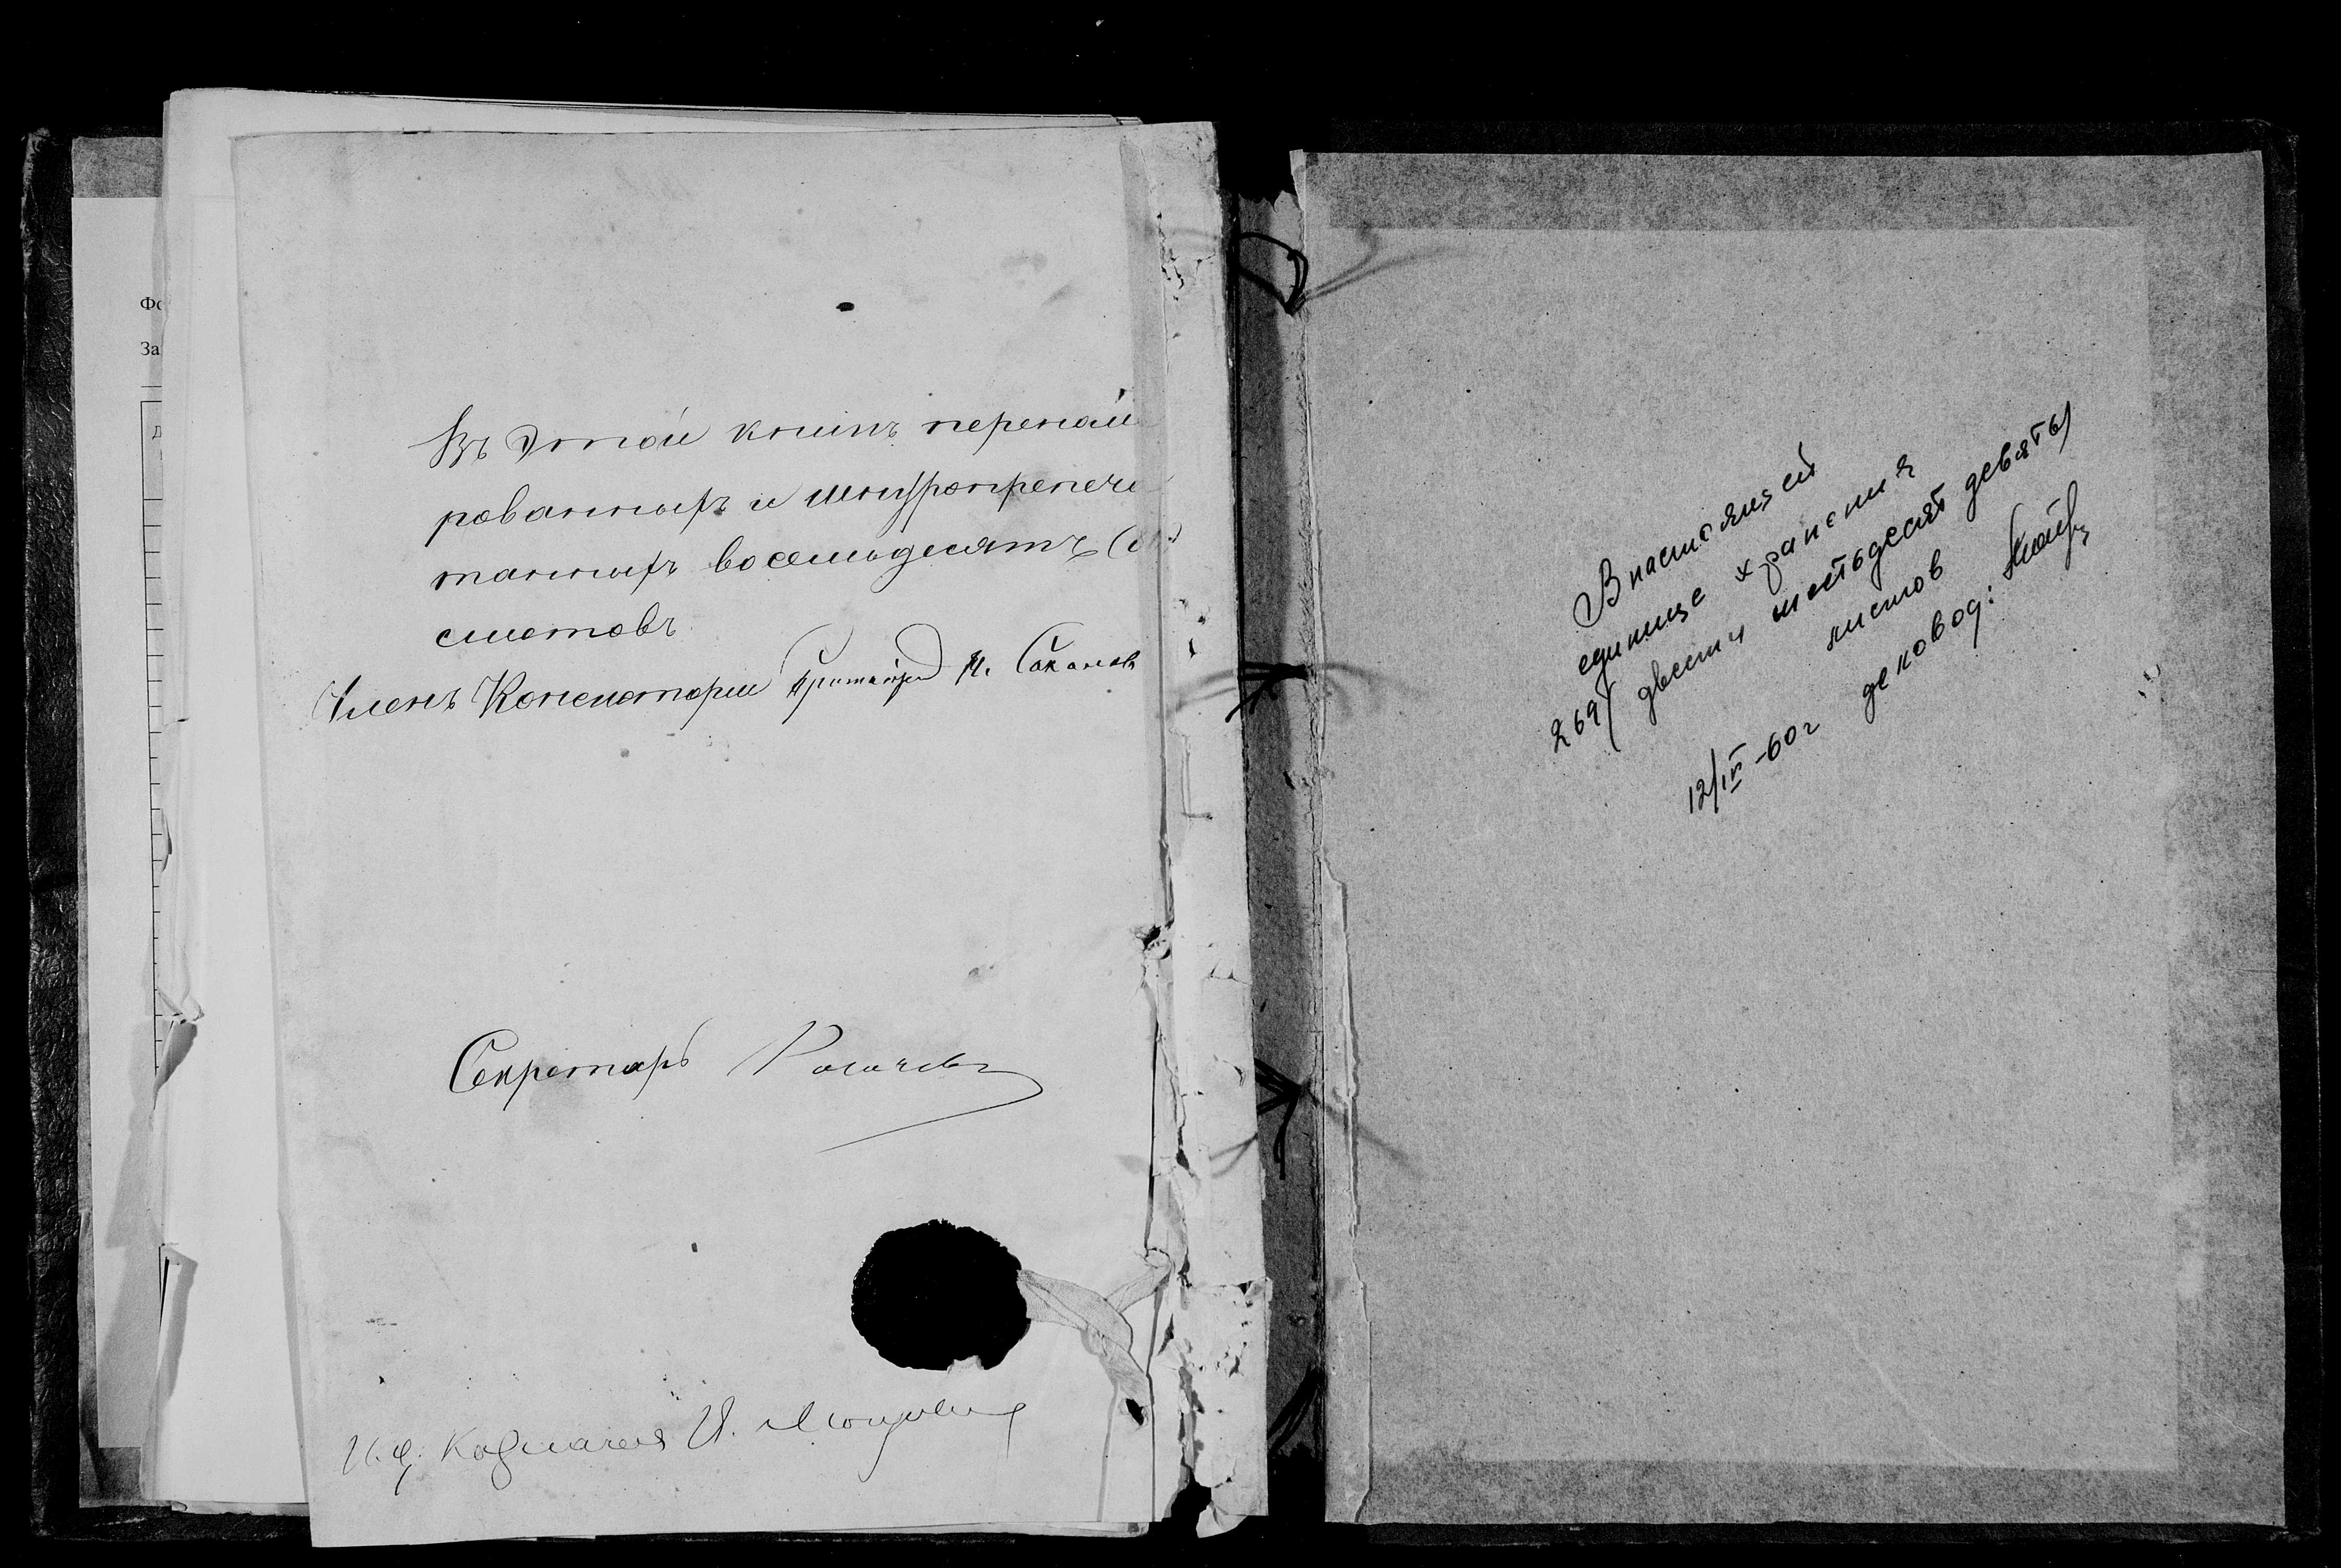 Фо
За
Въ этой книгѣ перенуме
рованныхъ и шнуропрепеча
танныхъ восемьдесятъ
листовъ
Членъ Консисторіи Протоіерей И. Соколовъ
Секретарь
И. д. Казначея
В настоящей
единице хранения
269 (двести шестьдесят девять)
листов
12/IV-60г деловод: